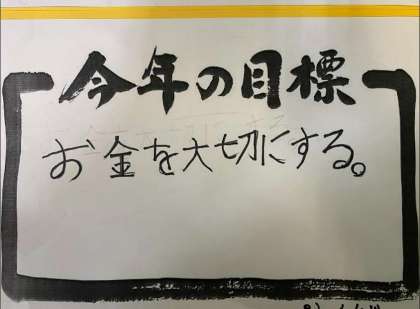 今年の目標
お金を大切にする。